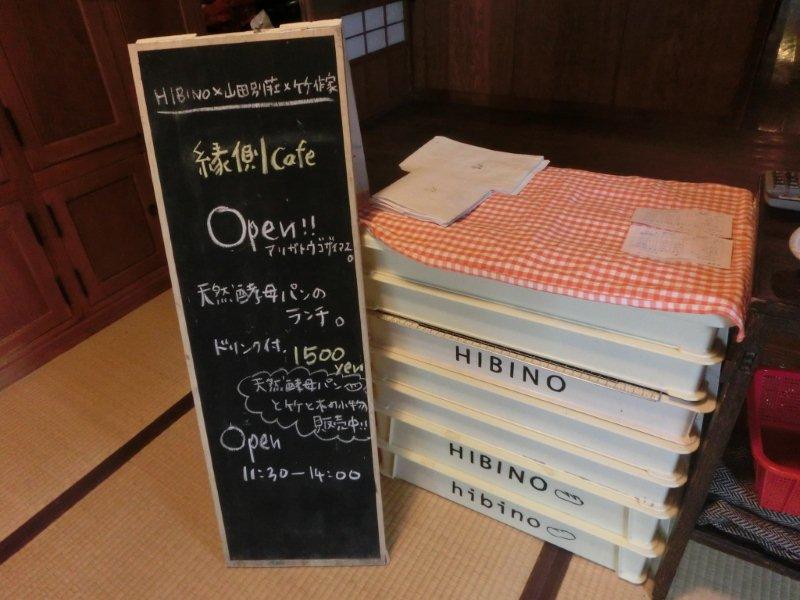 HIBINO×山田別荘×竹作家
縁側Cafe
Open!!
アリガトウゴザイマス。
天然酵母パンの
ランチ。
ドリンク付. 1500
yen
天然酵母パン
と竹と木の小物
販売中!!
Open
11:30-14:00
HIBINO
HIBINO
hibino